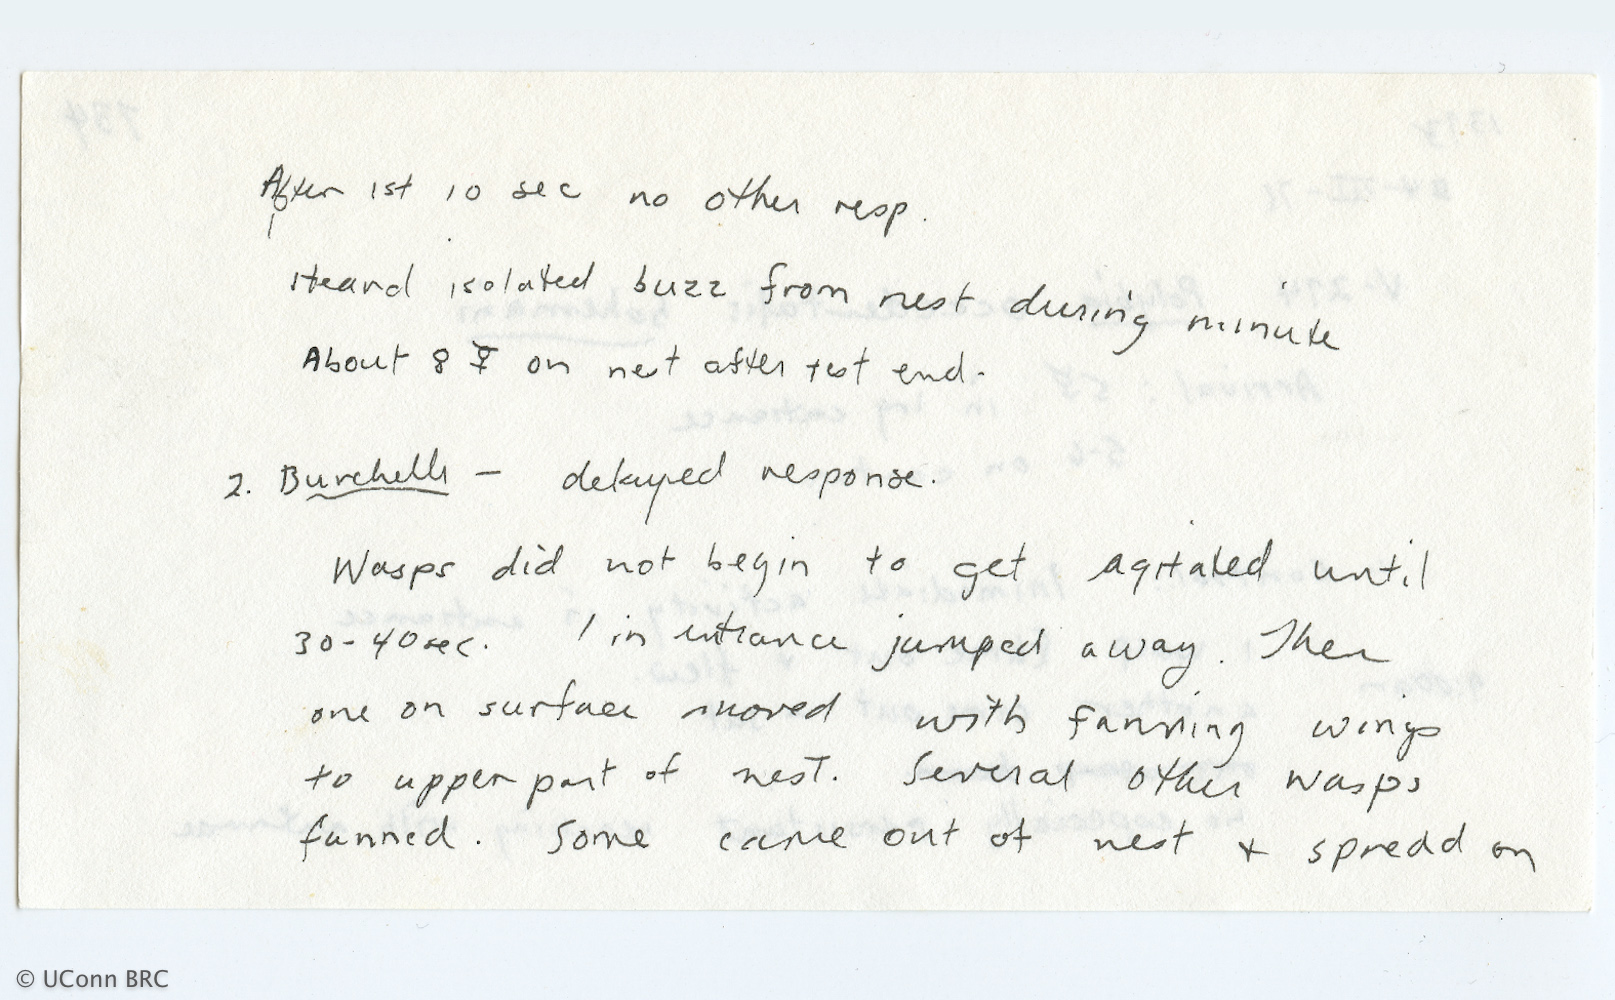 After 1st 10 sec no other resp.
Heard isolated buzz from nest during minute
About 8 ☿ on nest after test end.
2. Burchelli — delayed response.
Wasps did not begin to get agitated until
30-40 sec. 1 in entrance jumped away. Then
one on surface moved with fanning wings
to upper part of nest. Several other wasps
fanned. Some came out of nest + spread on
© UConn BRC